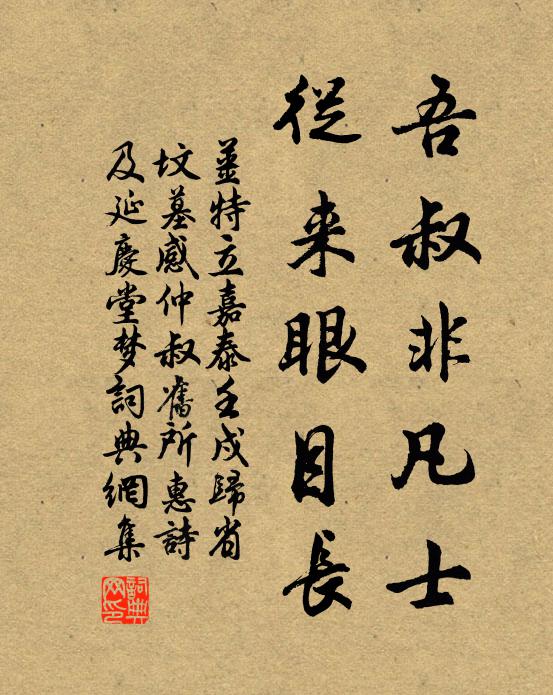 吾叔非凡士
從来眼目長
姜特立嘉泰壬戌歸省
坟墓感仲叔舊所惠詩
及延慶堂梦詞典網集
詞典网印